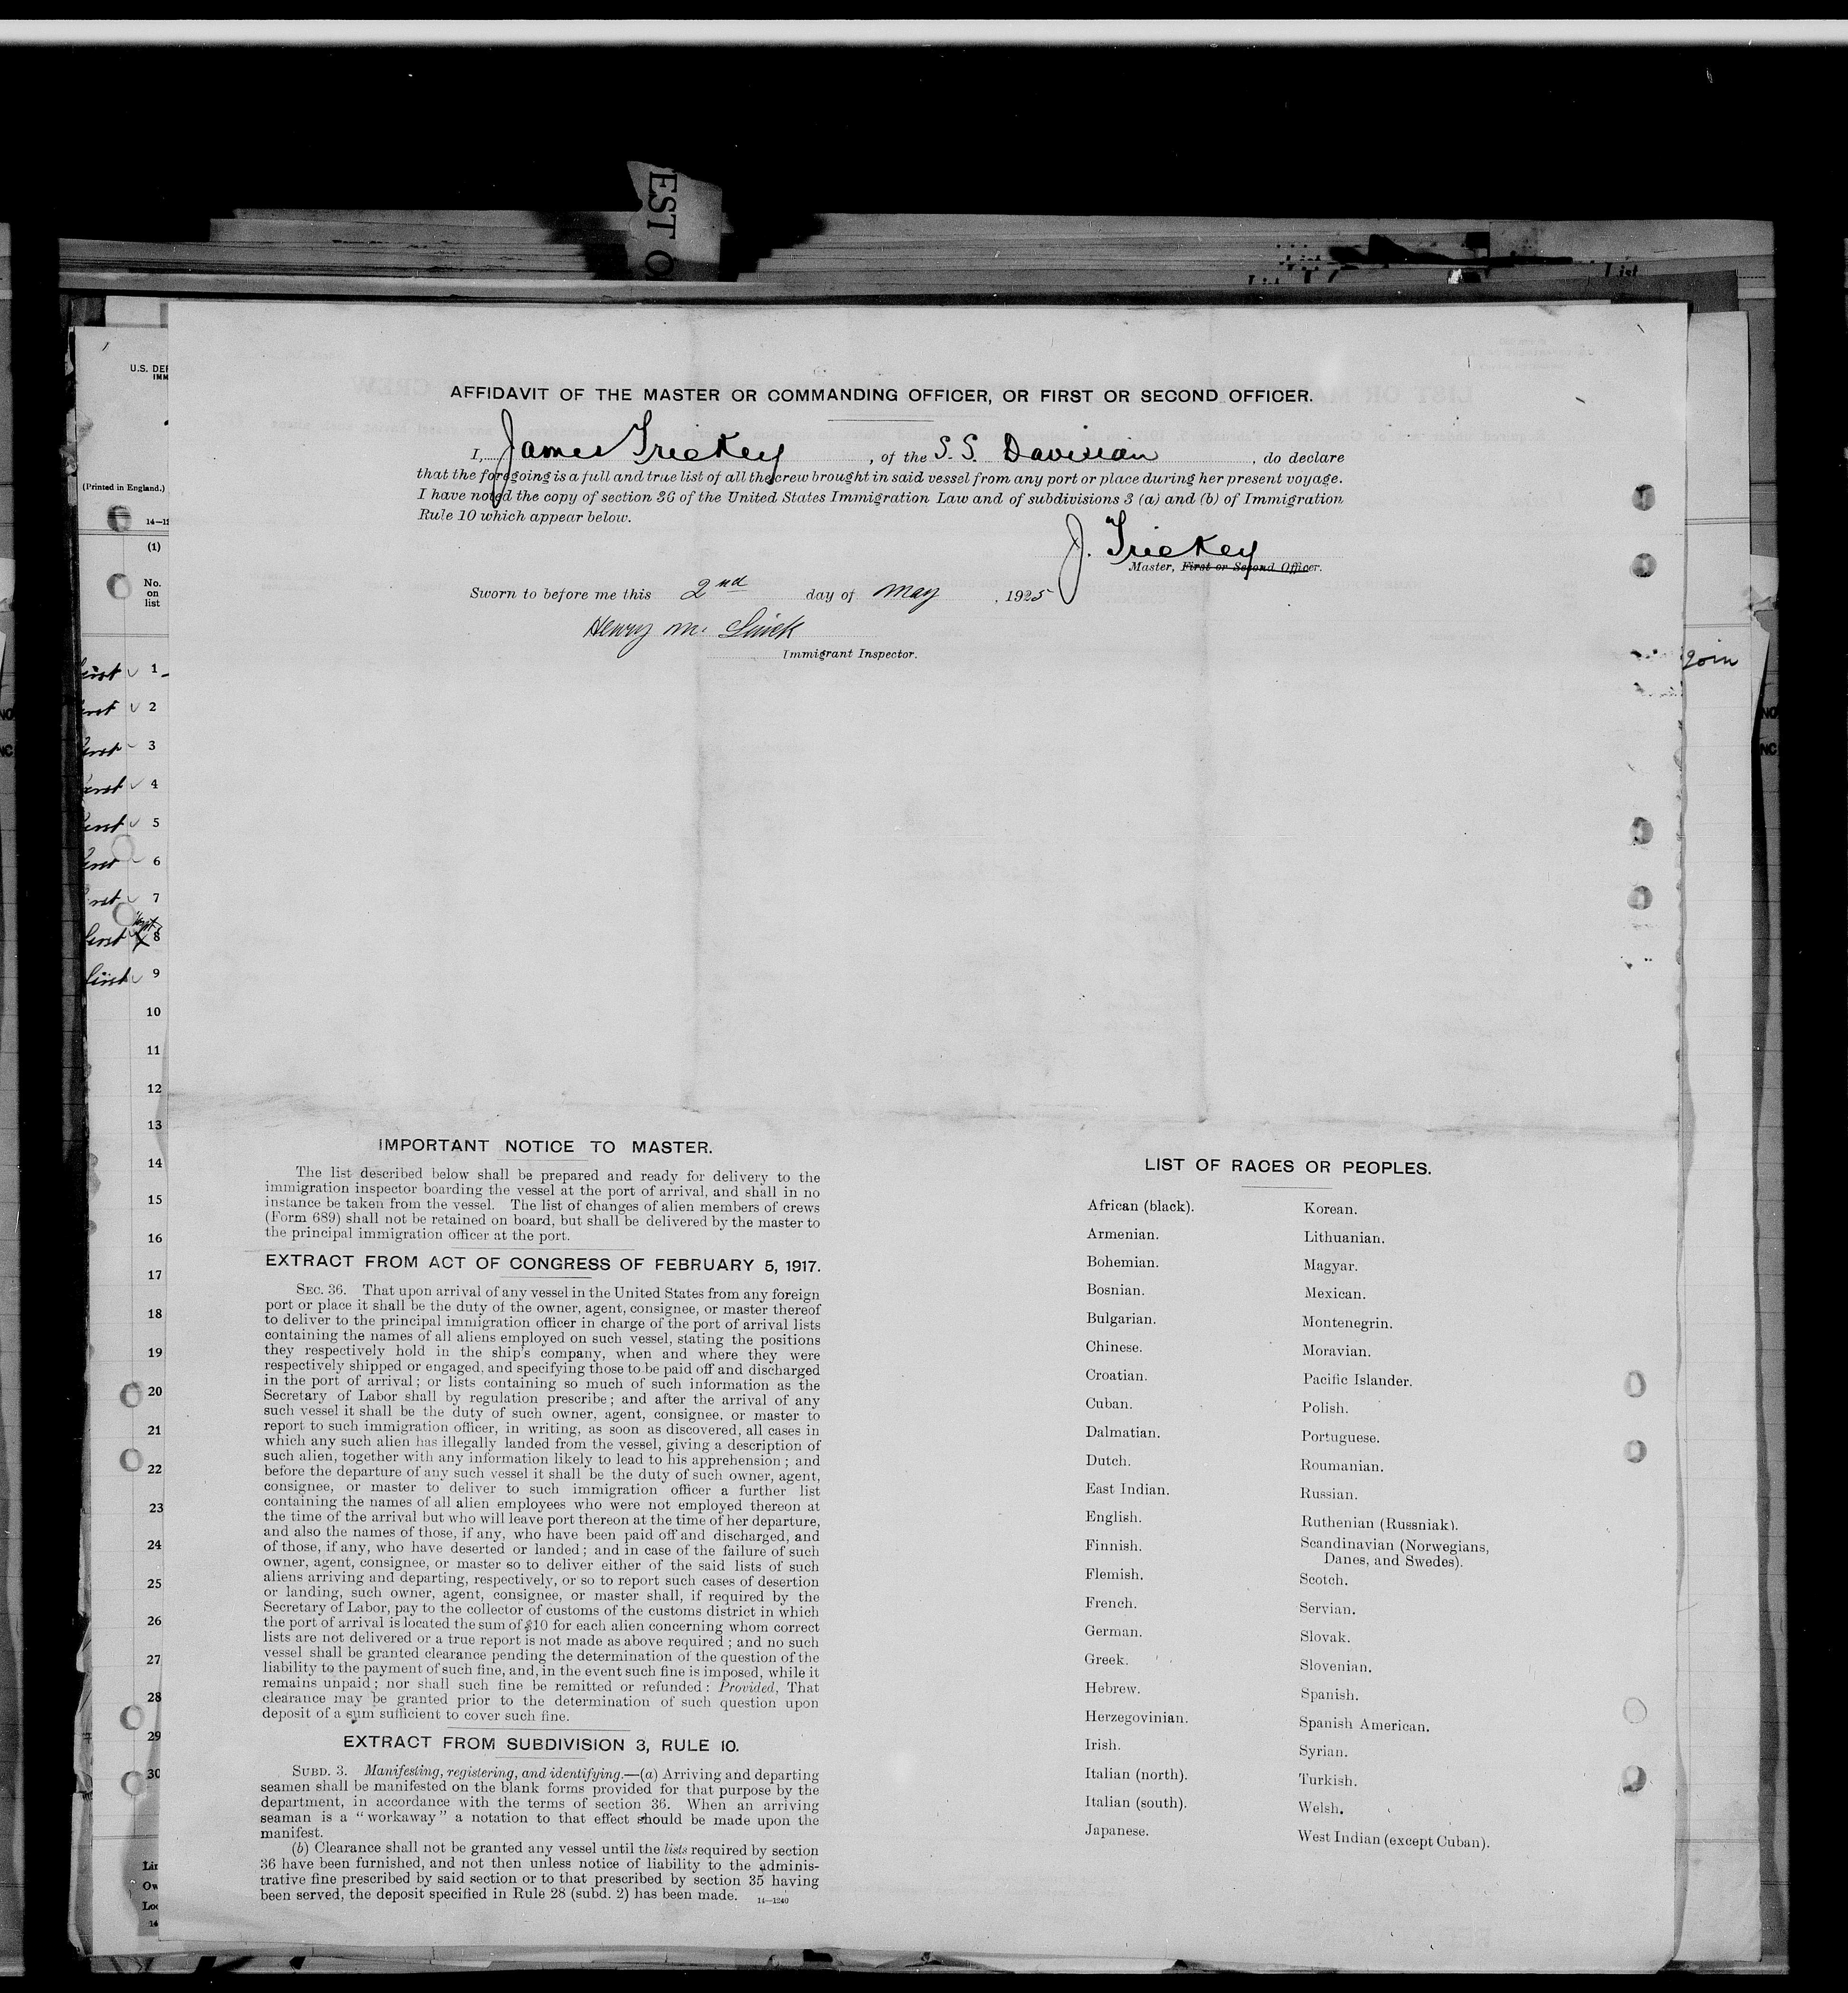 EST O
List
U.S. DEP
IMM
(Printed in England.)
14—11
(1)
No.
on
list
1
2
3
4
5
6
7
8
9
10
11
12
13
14
15
16
17
18
19
20
21
22
23
24
25
26
27
28
29
30
Lin
Ow
Loc
14
Join
AFFIDAVIT OF THE MASTER OR COMMANDING OFFICER, OR FIRST OR SECOND OFFICER.
I, James Trickey, of the S.S. Davisian, do declare
that the foregoing is a full and true list of all the crew brought in said vessel from any port or place during her present voyage.
I have noted the copy of section 36 of the United States Immigration Law and of subdivisions 3 (a) and (b) of Immigration
Rule 10 which appear below.
J. Trickey
Master, First or Second Officer.
Sworn to before me this 2nd day of May, 1925
Henry M.
Immigrant Inspector.
IMPORTANT NOTICE TO MASTER.
The list described below shall be prepared and ready for delivery to the
immigration inspector boarding the vessel at the port of arrival, and shall in no
instance be taken from the vessel. The list of changes of alien members of crews
(Form 689) shall not be retained on board, but shall be delivered by the master to
the principal immigration officer at the port.
EXTRACT FROM ACT OF CONGRESS OF FEBRUARY 5, 1917.
SEC. 36. That upon arrival of any vessel in the United States from any foreign
port or place it shall be the duty of the owner, agent, consignee, or master thereof
to deliver to the principal immigration officer in charge of the port of arrival lists
containing the names of all aliens employed on such vessel, stating the positions
they respectively hold in the ship's company, when and where they were
respectively shipped or engaged, and specifying those to be paid off and discharged
in the port of arrival; or lists containing so much of such information as the
Secretary of Labor shall by regulation prescribe; and after the arrival of any
such vessel it shall be the duty of such owner, agent, consignee, or master to
report to such immigration officer, in writing, as soon as discovered, all cases in
which any such alien has illegally landed from the vessel, giving a description of
such alien, together with any information likely to lead to his apprehension; and
before the departure of any such vessel it shall be the duty of such owner, agent,
consignee, or master to deliver to such immigration officer a further list
containing the names of all alien employees who were not employed thereon at
the time of the arrival but who will leave port thereon at the time of her departure,
and also the names of those, if any, who have been paid off and discharged, and
of those, if any, who have deserted or landed; and in case of the failure of such
owner, agent, consignee, or master so to deliver either of the said lists of such
aliens arriving and departing, respectively, or so to report such cases of desertion
or landing, such owner, agent, consignee, or master shall, if required by the
Secretary of Labor, pay to the collector of customs of the customs district in which
the port of arrival is located the sum of $10 for each alien concerning whom correct
lists are not delivered or a true report is not made as above required; and no such
vessel shall be granted clearance pending the determination of the question of the
liability to the payment of such fine, and, in the event such fine is imposed, while it
remains unpaid; nor shall such fine be remitted or refunded: Provided, That
clearance may be granted prior to the determination of such question upon
deposit of a sum sufficient to cover such fine.
EXTRACT FROM SUBDIVISION 3, RULE 10.
SUBD. 3. Manifesting, registering, and identifying.—(a) Arriving and departing
seamen shall be manifested on the blank forms provided for that purpose by the
department, in accordance with the terms of section 36. When an arriving
seaman is a "workaway" a notation to that effect should be made upon the
manifest.
(b) Clearance shall not be granted any vessel until the lists required by section
36 have been furnished, and not then unless notice of liability to the adminis-
trative fine prescribed by said section or to that prescribed by section 35 having
been served, the deposit specified in Rule 28 (subd. 2) has been made. 14—1240
LIST OF RACES OR PEOPLES.
African (black).
Armenian.
Bohemian.
Bosnian.
Bulgarian.
Chinese.
Croatian.
Cuban.
Dalmatian.
Dutch.
East Indian.
English.
Finnish.
Flemish.
French.
German.
Greek.
Hebrew.
Herzegovinian.
Irish.
Italian (north).
Italian (south).
Japanese.
Korean.
Lithuanian.
Magyar.
Mexican.
Montenegrin.
Moravian.
Pacific Islander.
Polish.
Portuguese.
Roumanian.
Russian.
Ruthenian (Russniak).
Scandinavian (Norwegians,
Danes, and Swedes).
Scotch.
Servian.
Slovak.
Slovenian.
Spanish.
Spanish American.
Syrian.
Turkish.
Welsh.
West Indian (except Cuban).